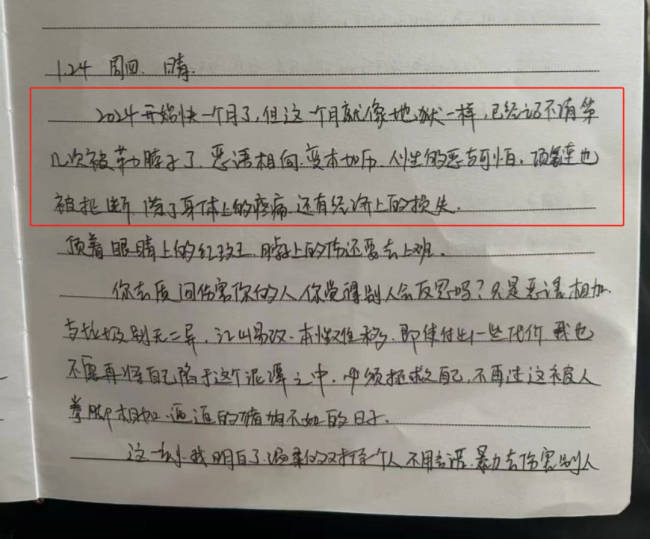 1.24 周四 晴.
2024开始快一个月了,但这一个月就像地狱一样,已经记不清第
几次被勒脖子了.恶语相向.变本加厉.人性的恶与可怕,项链也
被扯断.除了身体上的疼痛.还有经济上的损失.
顶着眼睛上的红斑.脖子上的伤还要去上班.
你去质问伤害你的人.你觉得别人会反思吗?只是恶语相加
与垃圾别无二异.江山易改.本性难移.即使付出一些代价 我也
不愿再将自己陷于这个泥潭之中.必须拯救自己.不再过这被人
拳脚相加.逼迫的猪狗不如的日子.
这一刻.我明白了.温柔的对待个人 不用言语.暴力去伤害别人